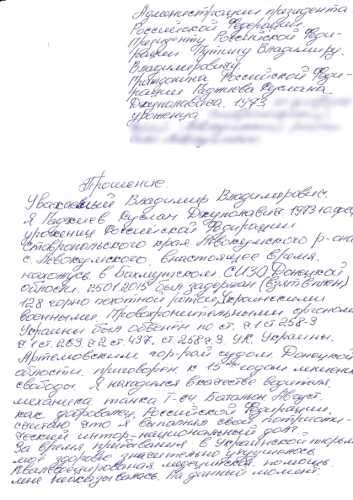 Администрации президента
Российской Федерации.
Президенту Российской Феде-
рации Путину Владимиру.
Владимировичу
Гражданина Российской Феде-
рации Гаджиева Руслана.
Джупалавовича. 1973
уроженца
Прошение
Уважаемый Владимир Владимирович.
Я Гаджиев Руслан 1973 года
уроженец Российской Федерации
Ставропольского края Левокумского р-она
с. Левокумского, внастоящее время.
нахожусь в Бахмутском СИЗО Донецкой
области. 25.01.2015 был задержан (взят в плен)
128 горно пехотной ротой, Украинскими
военными. Провохронительными органами
Украины был обвенён по ст. ч 1 ст 258-3
ч 1 ст. 263 ч 2 ст. 437. ст. 258 ч 3. УК. Украины.
Артемовским гор-рай судом Донецкой
области. приговорен к 15 годам лишения
свободы. Я находился в качестве водителя.
механика танка Т-64 Батальон Август.
как доброволец. Российской Федерации.
считаю что я выполнял свой патриоти-
ческий интер-национальный долг.
За время прибования в Украинской тюрьме
моё здоровье значительно ухудшелось
Квалефецированая медецинская. помощь.
мне неоказывалась. На данный момент.